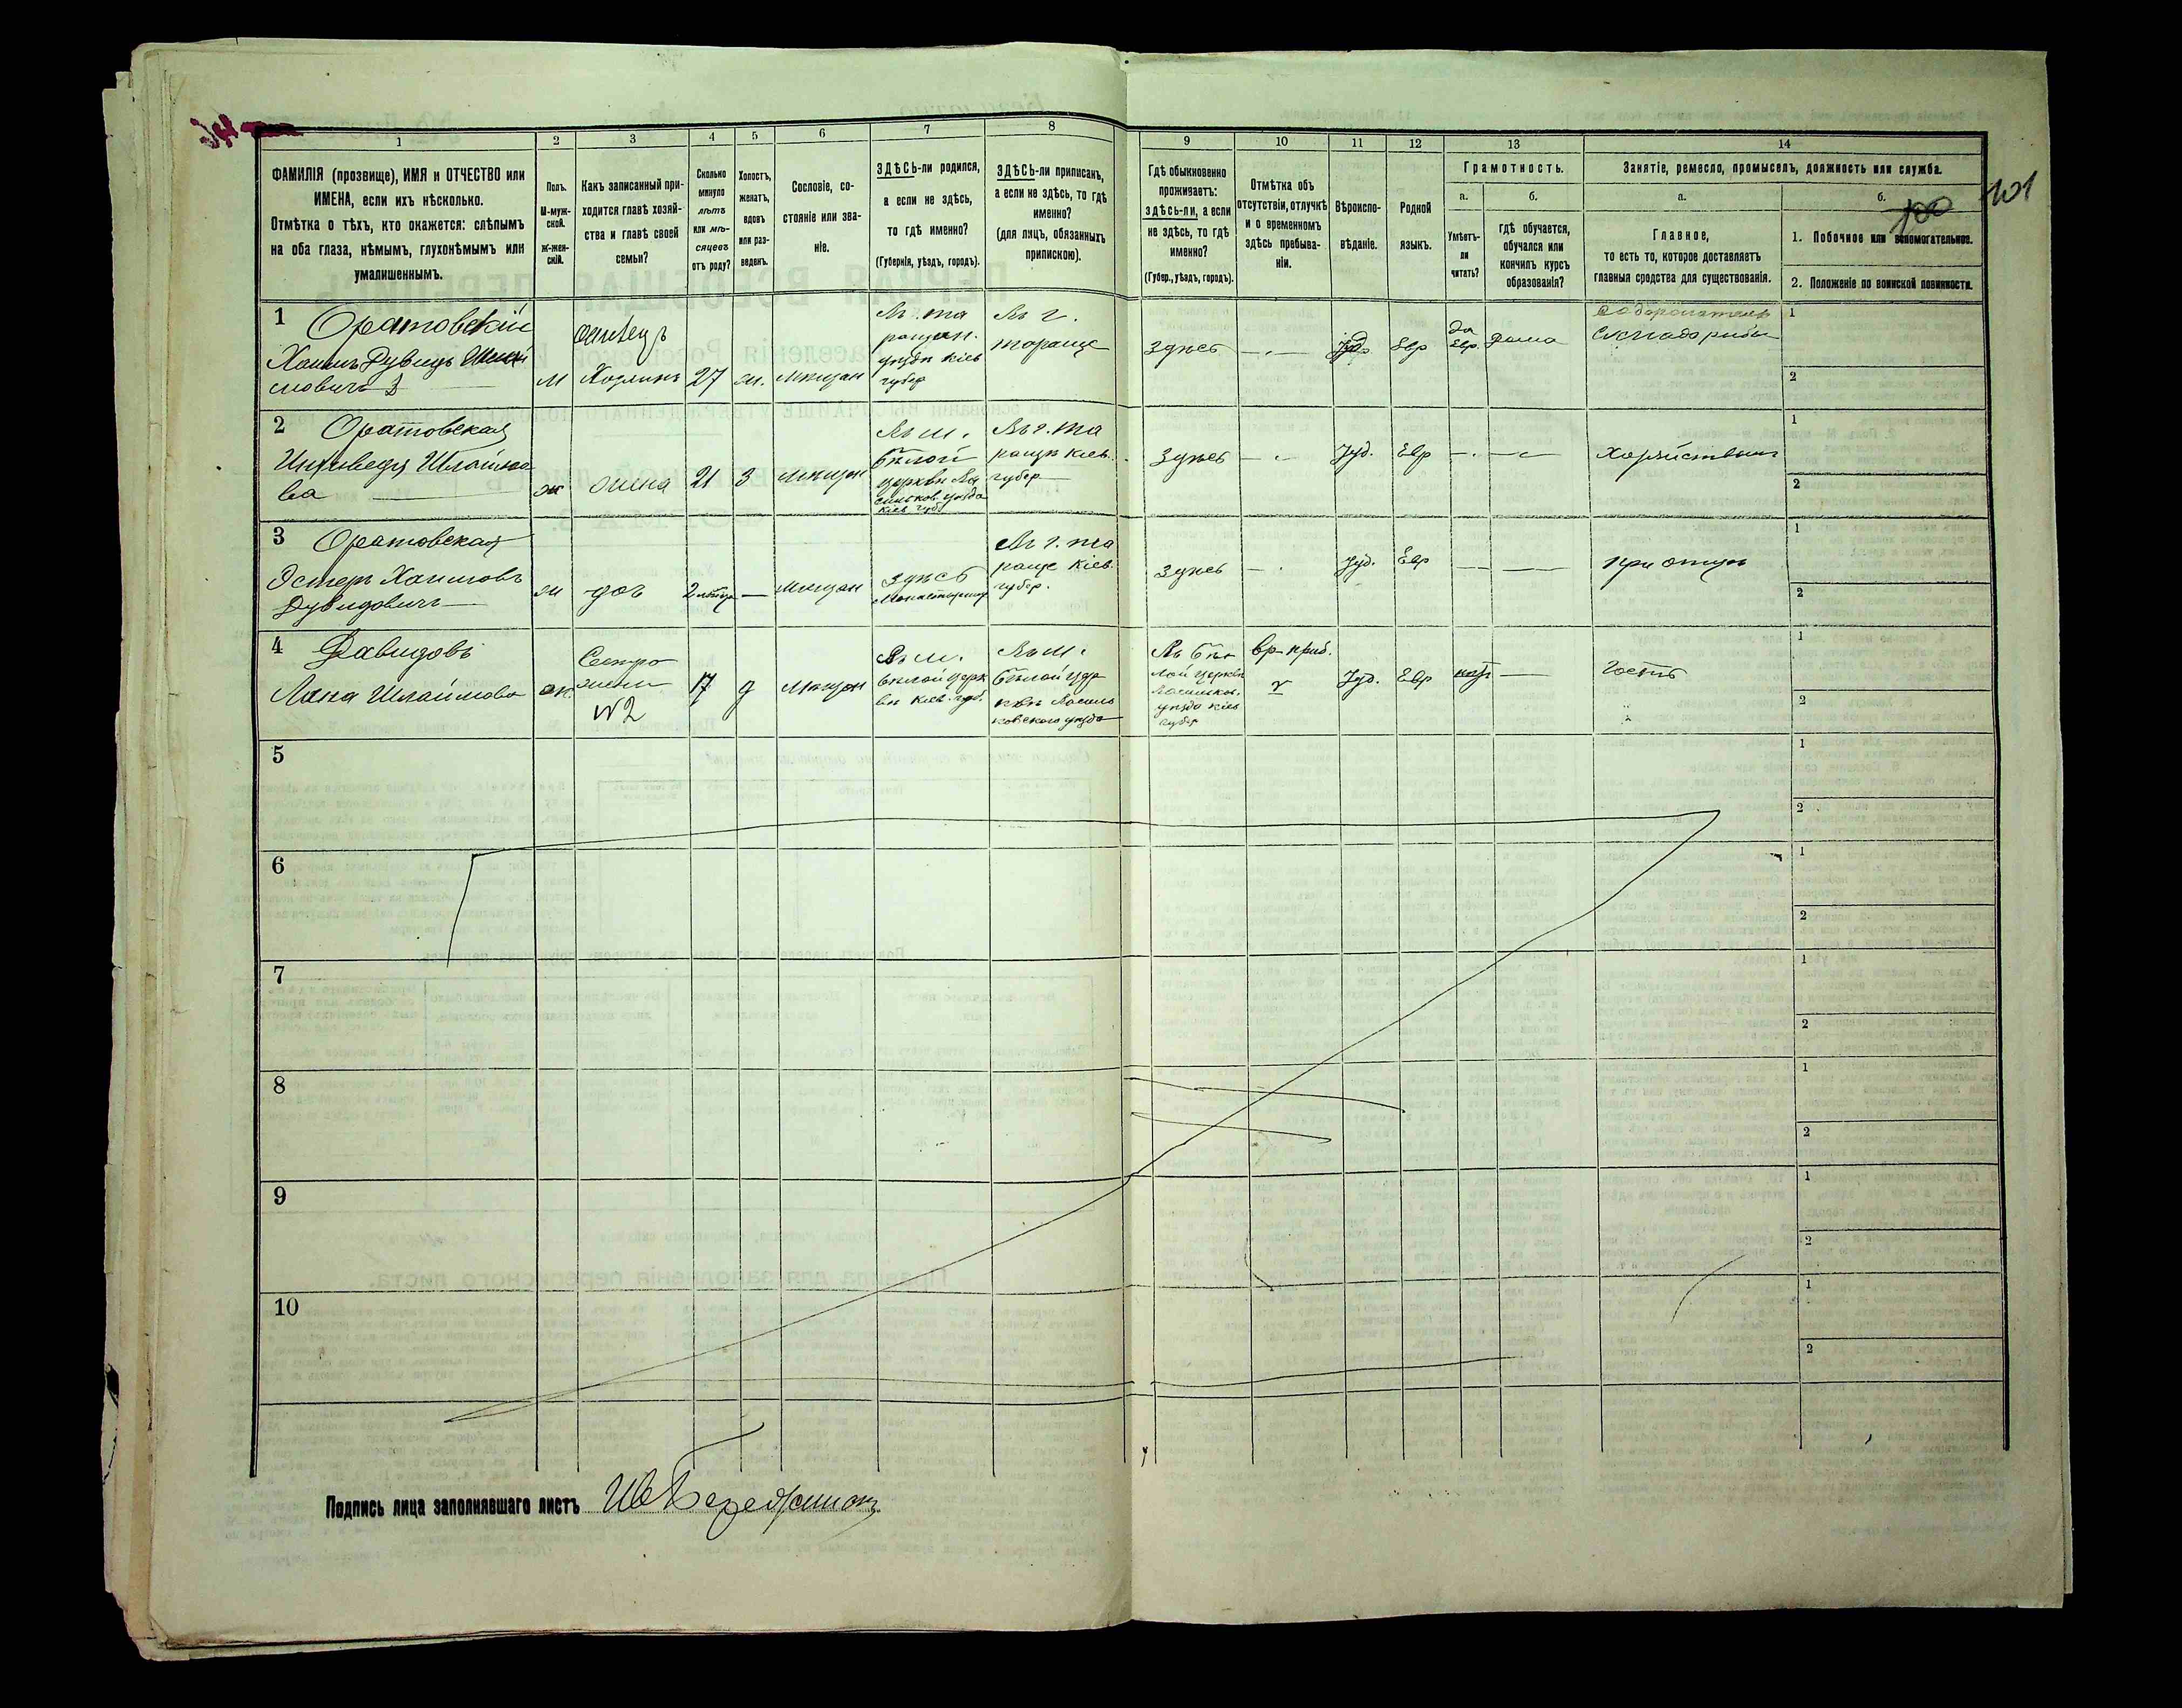 101
100
1
2
3
4
5
6
7
8
9
10
11
12
13
14
ФАМИЛІЯ (прозвище), ИМЯ и ОТЧЕСТВО или
ИМЕНА, если ихъ нѣсколько.
Отмѣтка о тѣхъ, кто окажется: слѣпымъ
на оба глаза, нѣмымъ, глухонѣмымъ или
умалишеннымъ.
Полъ.
М-муж-
ской.
Ж-жен-
скій.
Какъ записанный при-
ходится главѣ хозяй-
ства и главѣ своей
семьи?
Сколько
минуло
лѣтъ
или мѣ-
сяцевъ
отъ роду?
Холостъ,
женатъ,
вдовъ
или раз-
веденъ.
Сословіе, со-
стояніе или зва-
ніе.
ЗДѢСЬ-ли родился,
а если не здѣсь,
то гдѣ именно?
(Губернія, уѣздъ, городъ).
ЗДѢСЬ-ли приписанъ,
а если не здѣсь, то гдѣ
именно?
(для лицъ, обязанныхъ
припискою).
Гдѣ обыкновенно
проживаетъ:
ЗДѢСЬ-ли, а если
не здѣсь, то гдѣ
именно?
(Губер., уѣздъ, городъ).
Отмѣтка объ
отсутствіи, отлучкѣ
и о временномъ
здѣсь пребыва-
ніи.
Вѣроиспо-
вѣданіе.
Родной
языкъ.
Грамотность.
а.
б.
Умѣетъ-
ли
читать?
гдѣ обучается,
обучался или
кончилъ курсъ
образованія?
Занятіе, ремесло, промыселъ, должность или служба.
а.
б.
Главное,
то есть то, которое доставляетъ
главныя средства для существованія.
1. Побочное или вспомогательное.
2. Положеніе по воинской повинности.
1
Оратовскій
Хаимъ Дувидъ
м
Хозяинъ
27
ж.
мѣщан
Въ та
ращан.
уѣздѣ Кіев
губер
Въ г.
тараще
здѣсь
Іуд.
Евр
да
Евр.
дома
Содержатель
склада рыбы
1
2
2
Оратовская
Шлаймо
ва
ж
жена
21
З
мѣщан
Въ м.
Бѣлой
Церкви Ва
сильков. уѣзда
Кіев губ.
Въ г. Та
ращѣ Кіев.
губер.
здѣсь
Іуд.
Евр
1
2
3
Оратовская
Эстеръ Хаимовъ
Дувидовичъ
ж
дочь
2
мѣщан
здѣсь
Монастырищ
Въ г. та
раще Кіев.
губер.
здѣсь
Іуд.
Евр
при отцѣ
1
2
4
Давидовъ
Шлаймова
ж.
Сестра
жены
№2
17
д
мѣщан
Въ м.
Бѣлой Церк
ви Кіев. губ.
Въ м.
Бѣлой Цер
кви Василь
ковскаго уѣзда
Въ Бѣ
лой Церкви
Васильков.
уѣзда Кіев
губер
вр. приб.
Іуд.
Евр
нѣт
гость
1
2
5
1
2
6
1
2
7
1
2
8
1
2
9
1
2
10
1
2
Подпись лица заполнявшаго листъ